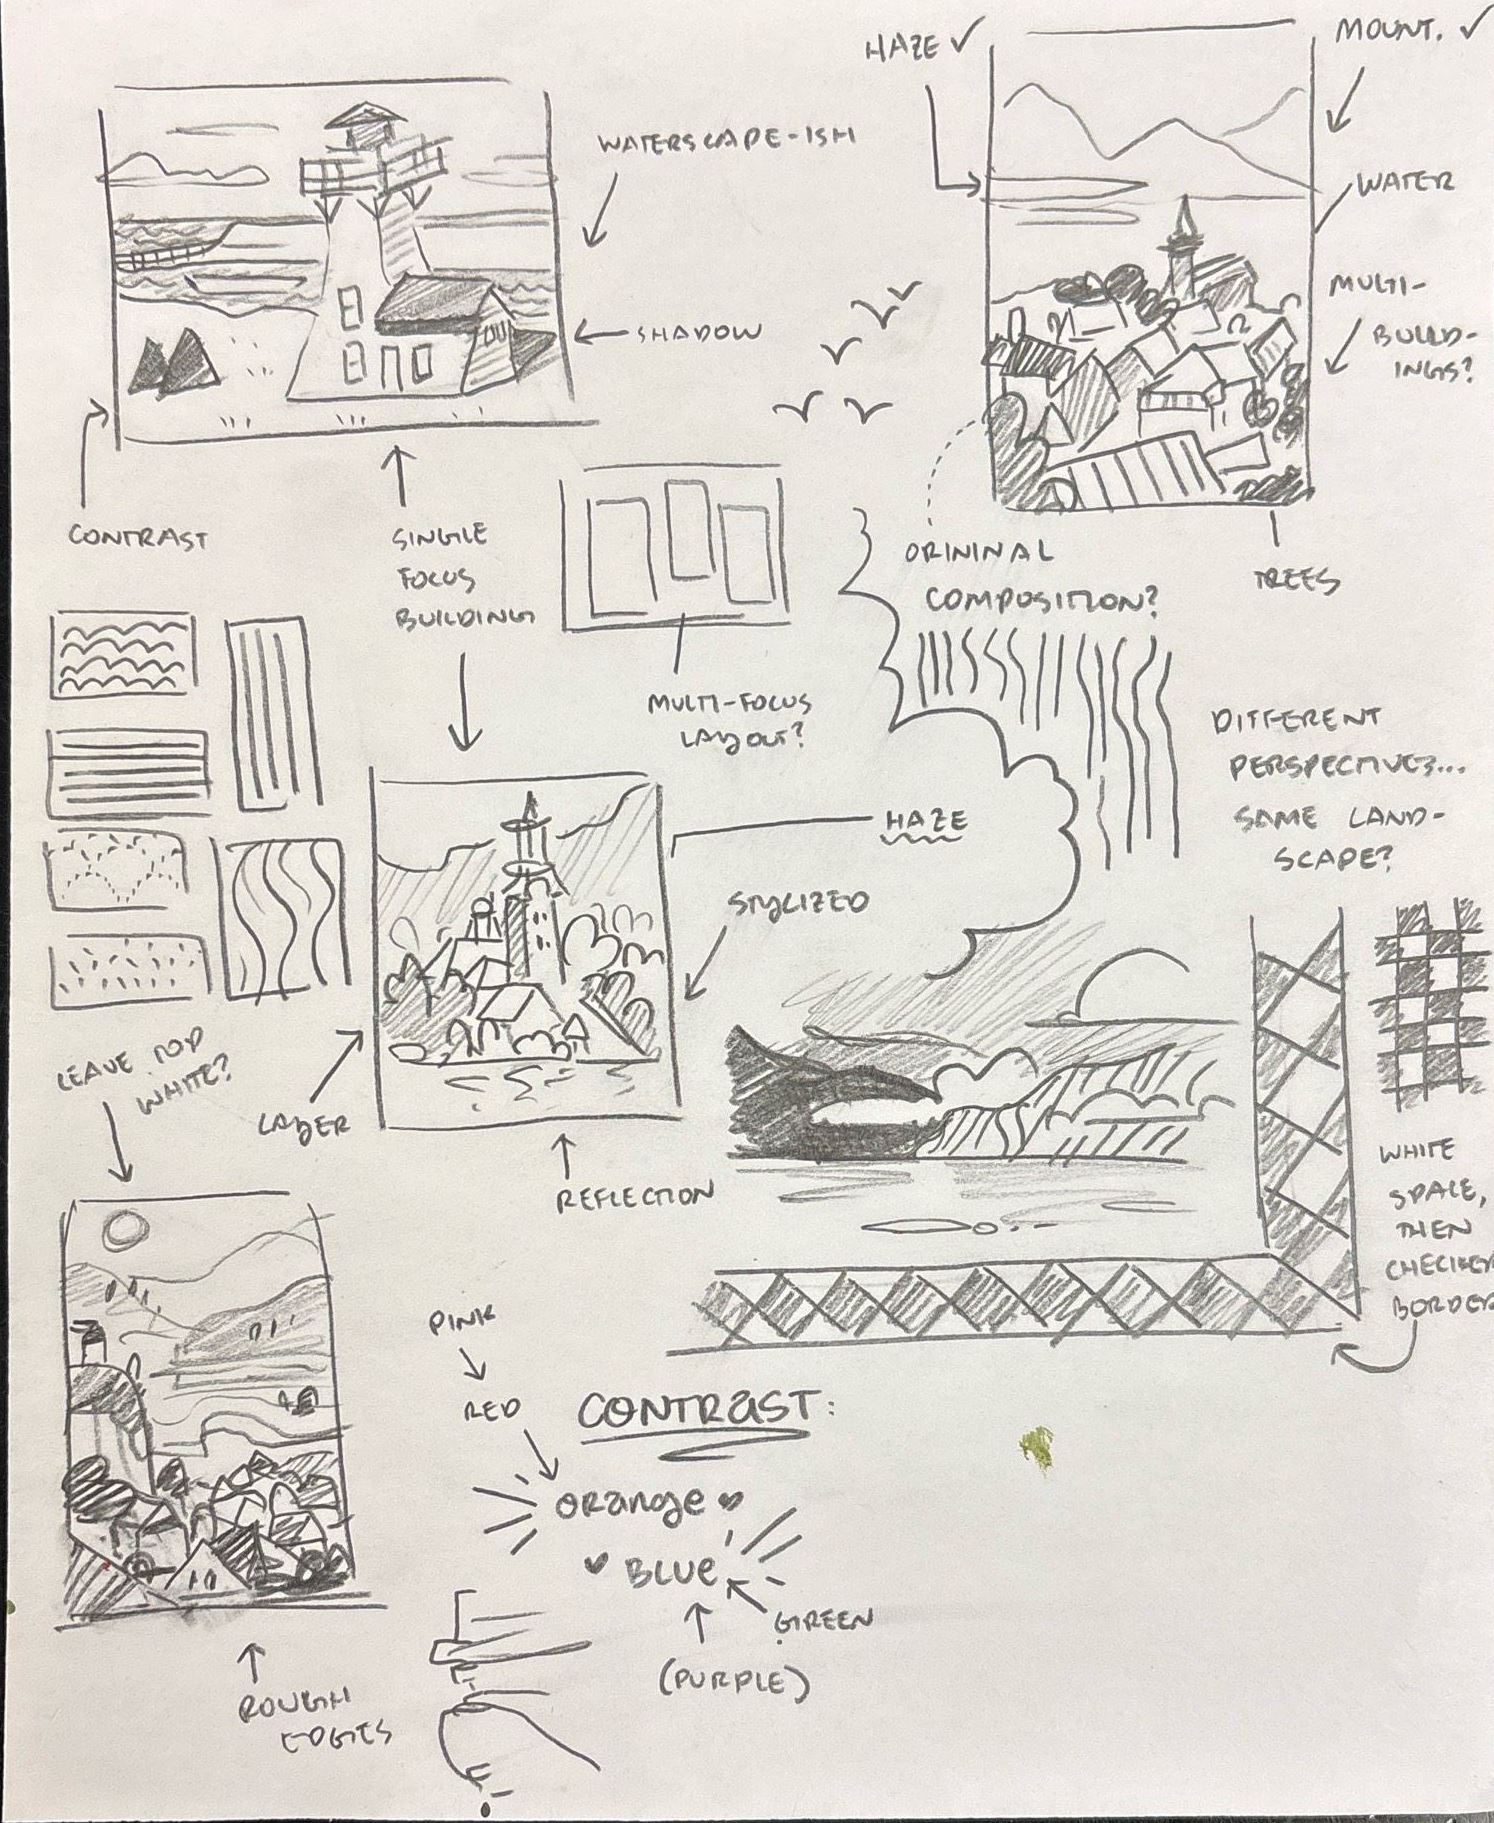 HAZE ✓
MOUNT. ✓
WATERSCAPE-ISH
WATER
SHADOW
MULTI-
BUILD-
INGS?
CONTRAST
SINGLE
FOCUS
BUILDING
ORININAL
COMPOSITION?
TREES
MULTI-FOCUS
LAYOUT?
DIFFERENT
PERSPECTIVES...
SAME LAND-
SCAPE?
HAZE
STYLIZED
LEAVE TOP
WHITE?
LAYER
REFLECTION
WHITE
SPACE,
THEN
CHECKER
BORDER
PINK
RED
CONTRAST:
ORANGE
BLUE
GREEN
(PURPLE)
ROUGH
EDGES